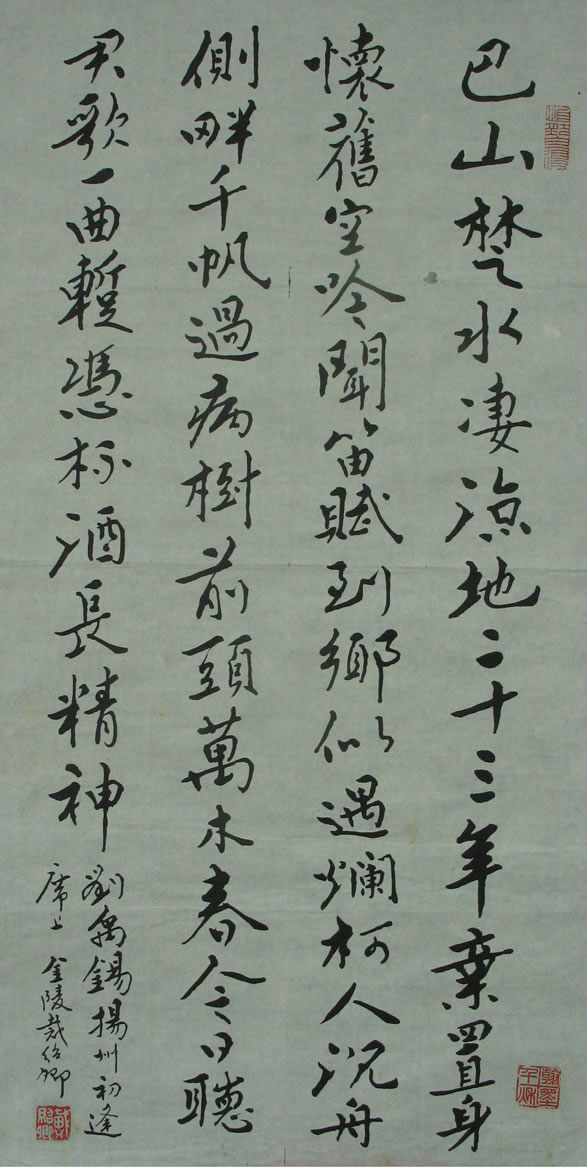 巴山楚水凄涼地二十三年棄置身
懷舊空吟聞笛賦到鄉似遇爛柯人沉舟
側畔千帆過病樹前頭萬木春今日聽
君歌一曲蹔憑杯酒長精神
劉禹錫揚州初逢
席上 金陵戴紹卿
翰墨千秋